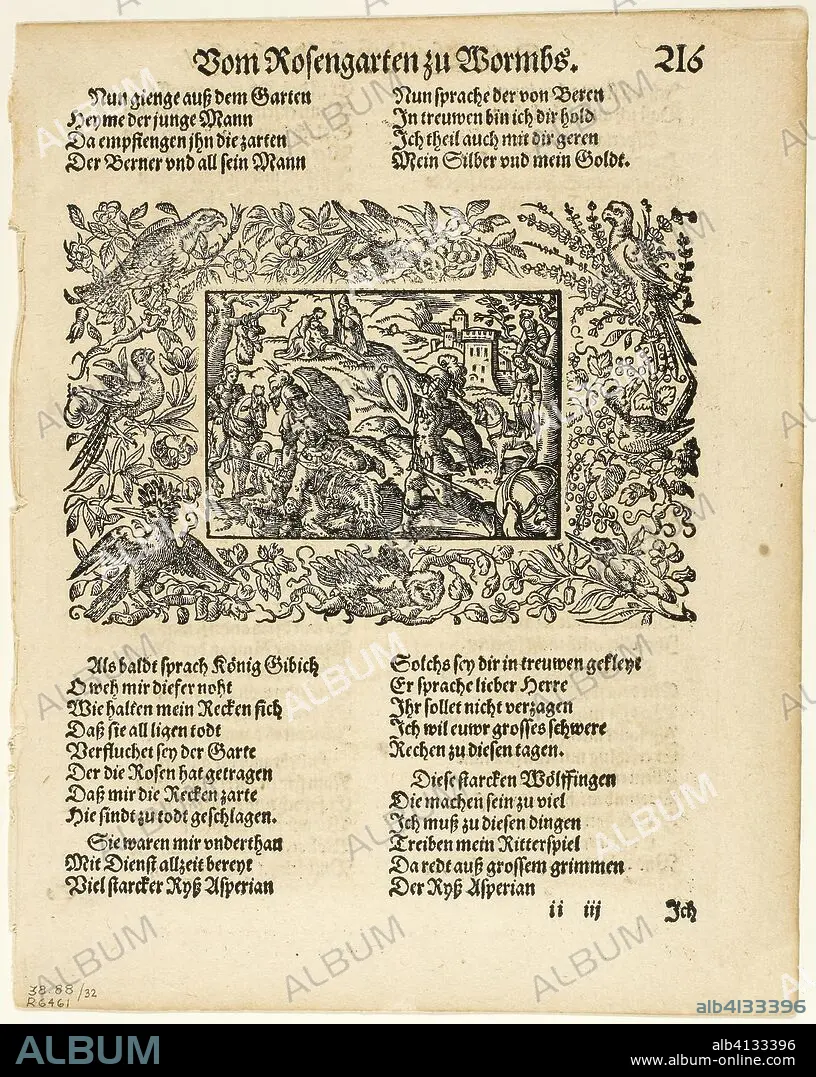 Vom Rosengarten zu Wormbs. 216
Nun gienge auß dem Garten
Heyme der junge Mann
Da empfiengen jhn die zarten
Der Berner vnd all sein Mann
Nun sprache der von Beren
In treuwen bin ich dir hold
Ich theil auch mit dir geren
Mein Silber vnd mein Goldt.
Als baldt sprach König Gibich
O weh mir dieser noht
Wie halten mein Recken sich
Daß sie all ligen todt
Verfluchet sey der Garte
Der die Rosen hat getragen
Daß mir die Recken zarte
Hie sindt zu todt geschlagen.
Sie waren mir vnderthan
Mit Dienst allzeit bereyt
Viel starcker Ryß Asperian
Solchs sey dir in treuwen gekleyt
Er sprache lieber Herre
Ihr sollet nicht verzagen
Ich wil euwr grosses schwere
Rechen zu diesen tagen.
Diese starcken Wölffingen
Die machen sein zu viel
Ich muß zu diesen dingen
Treiben mein Ritterspiel
Da redt auß grossem grimmen
Der Ryß Asperian
ii iij Ich
38.88/32
R6461
ALBUM
alb4133396
ALBUM
alb4133396
www.album-online.com